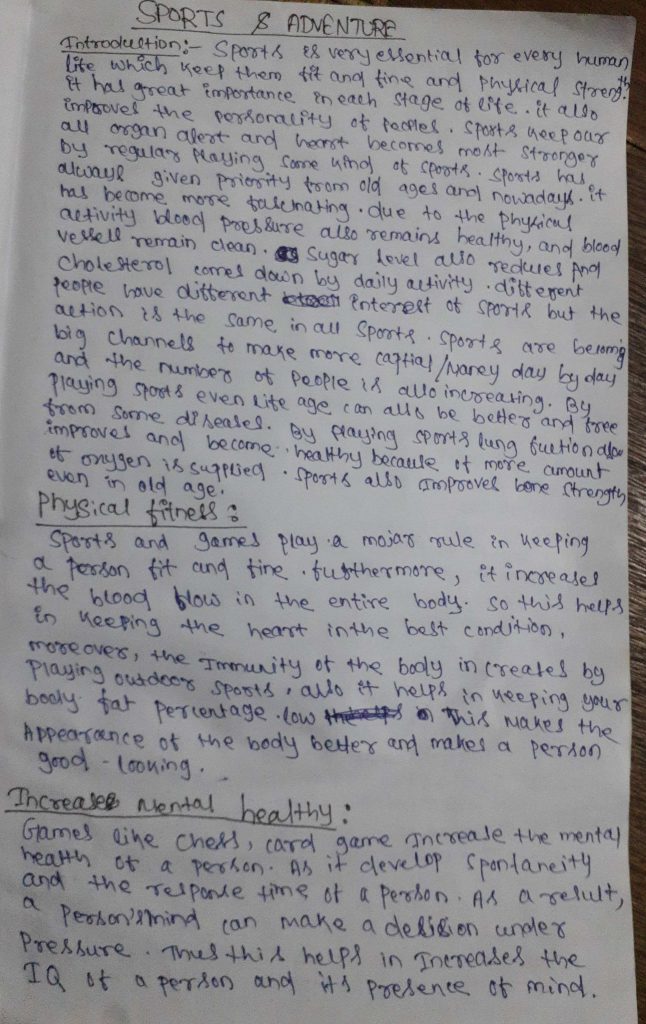 SPORTS & ADVENTURE
Introduction:- Sports is very essential for every human
life which keep them fit and fine and Physical strength.
it has great importance in each stage of life. it also
improves the personality of peoples. Sports keep our
all organ alert and heart becomes most stronger
by regular Playing some kind of sports. Sports has
always given priority from old ages and nowadays. it
has become more fascinating. due to the physical
activity blood pressure also remains healthy, and blood
vessell remain clean. Sugar level also reduces And
cholesterol comes down by daily activity. different
people have different interest of sports but the
action is the same in all sports. sports are becoming
big channels to make more captial/Maney day by day
and the number of people is also increasing. By
playing sports even life age can also be better and free
from some diseases. By playing sports lung fuction also
improves and become healthy because of more amount
of oxygen is supplied. sports also improves bone strength
even in old age.
Physical fitness:
Sports and games play a mojar rule in keeping
a person fit and fine. furthermore, it increases
the blood blow in the entire body. So this helps
in keeping the heart in the best condition,
moreover, the Immunity of the body increates by
Playing outdoor sports, also it helps in keeping your
body fat percentage low This makes the
Appearance of the body better and makes a person
good-looking.
Increases Mental healthy:
Games like chess, card game increase the mental
health of a person. As it develop spontaneity
and the response time of a person. As a result,
a Person's mind can make a desision under
Pressure. Thus this helps in Increases the
IQ of a person and its presence of mind.